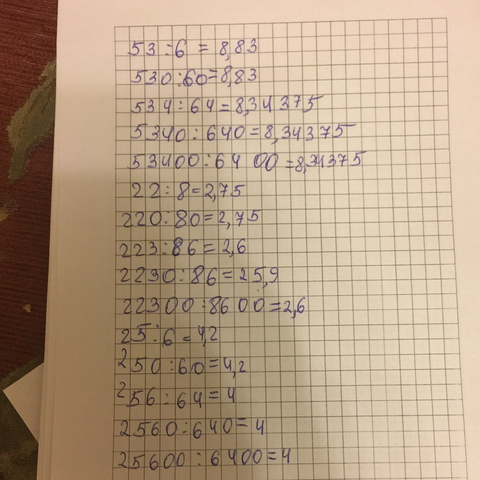 53:6 = 8,83
530:60=8,83
534:64=8,34375
5340:640=8,34375
53400:6400=8,34375
22:8=2,75
220:80=2,75
223:86=2,6
2230:86=25,9
22300:8600=2,6
25:6=4,2
250:60=4,2
256:64=4
2560:640=4
25600:6400=4